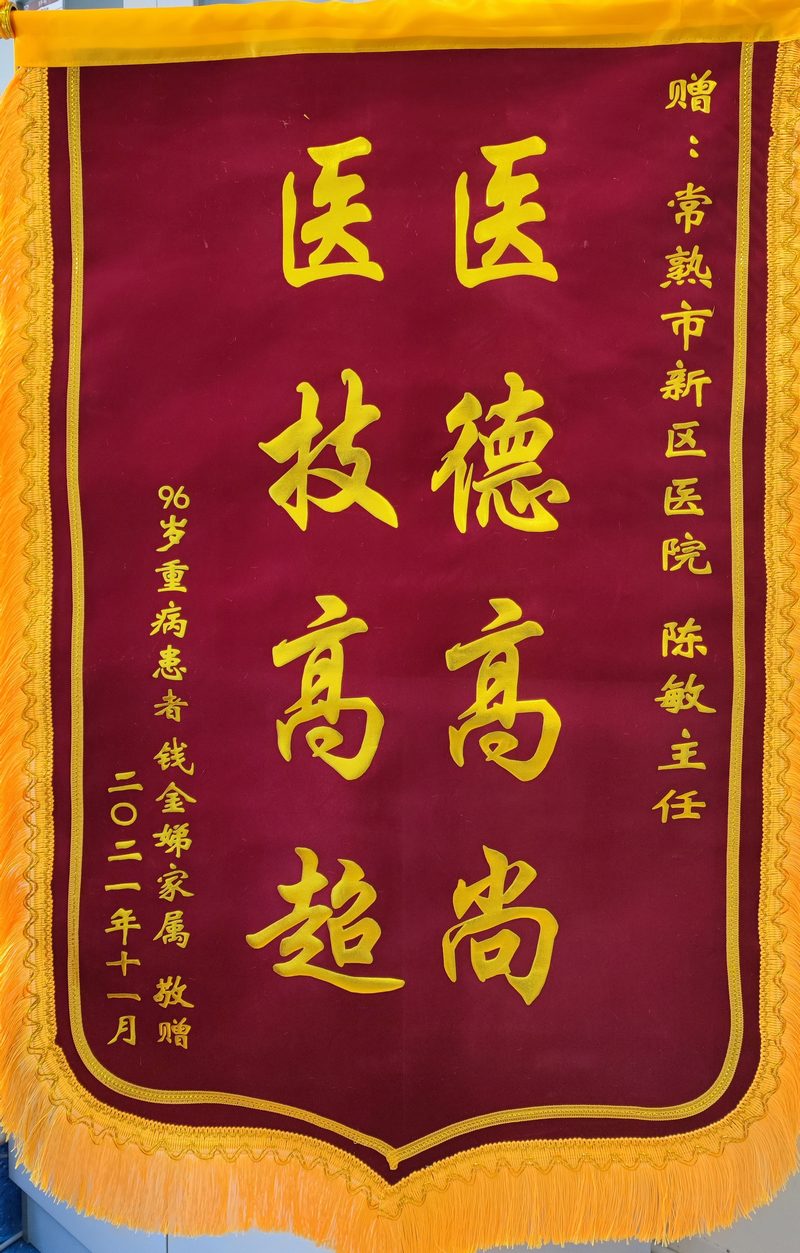 赠：常熟市新区医院 陈敏主任
医德高尚
医技高超
96岁重病患者钱金娣家属 敬赠
二〇二一年十一月